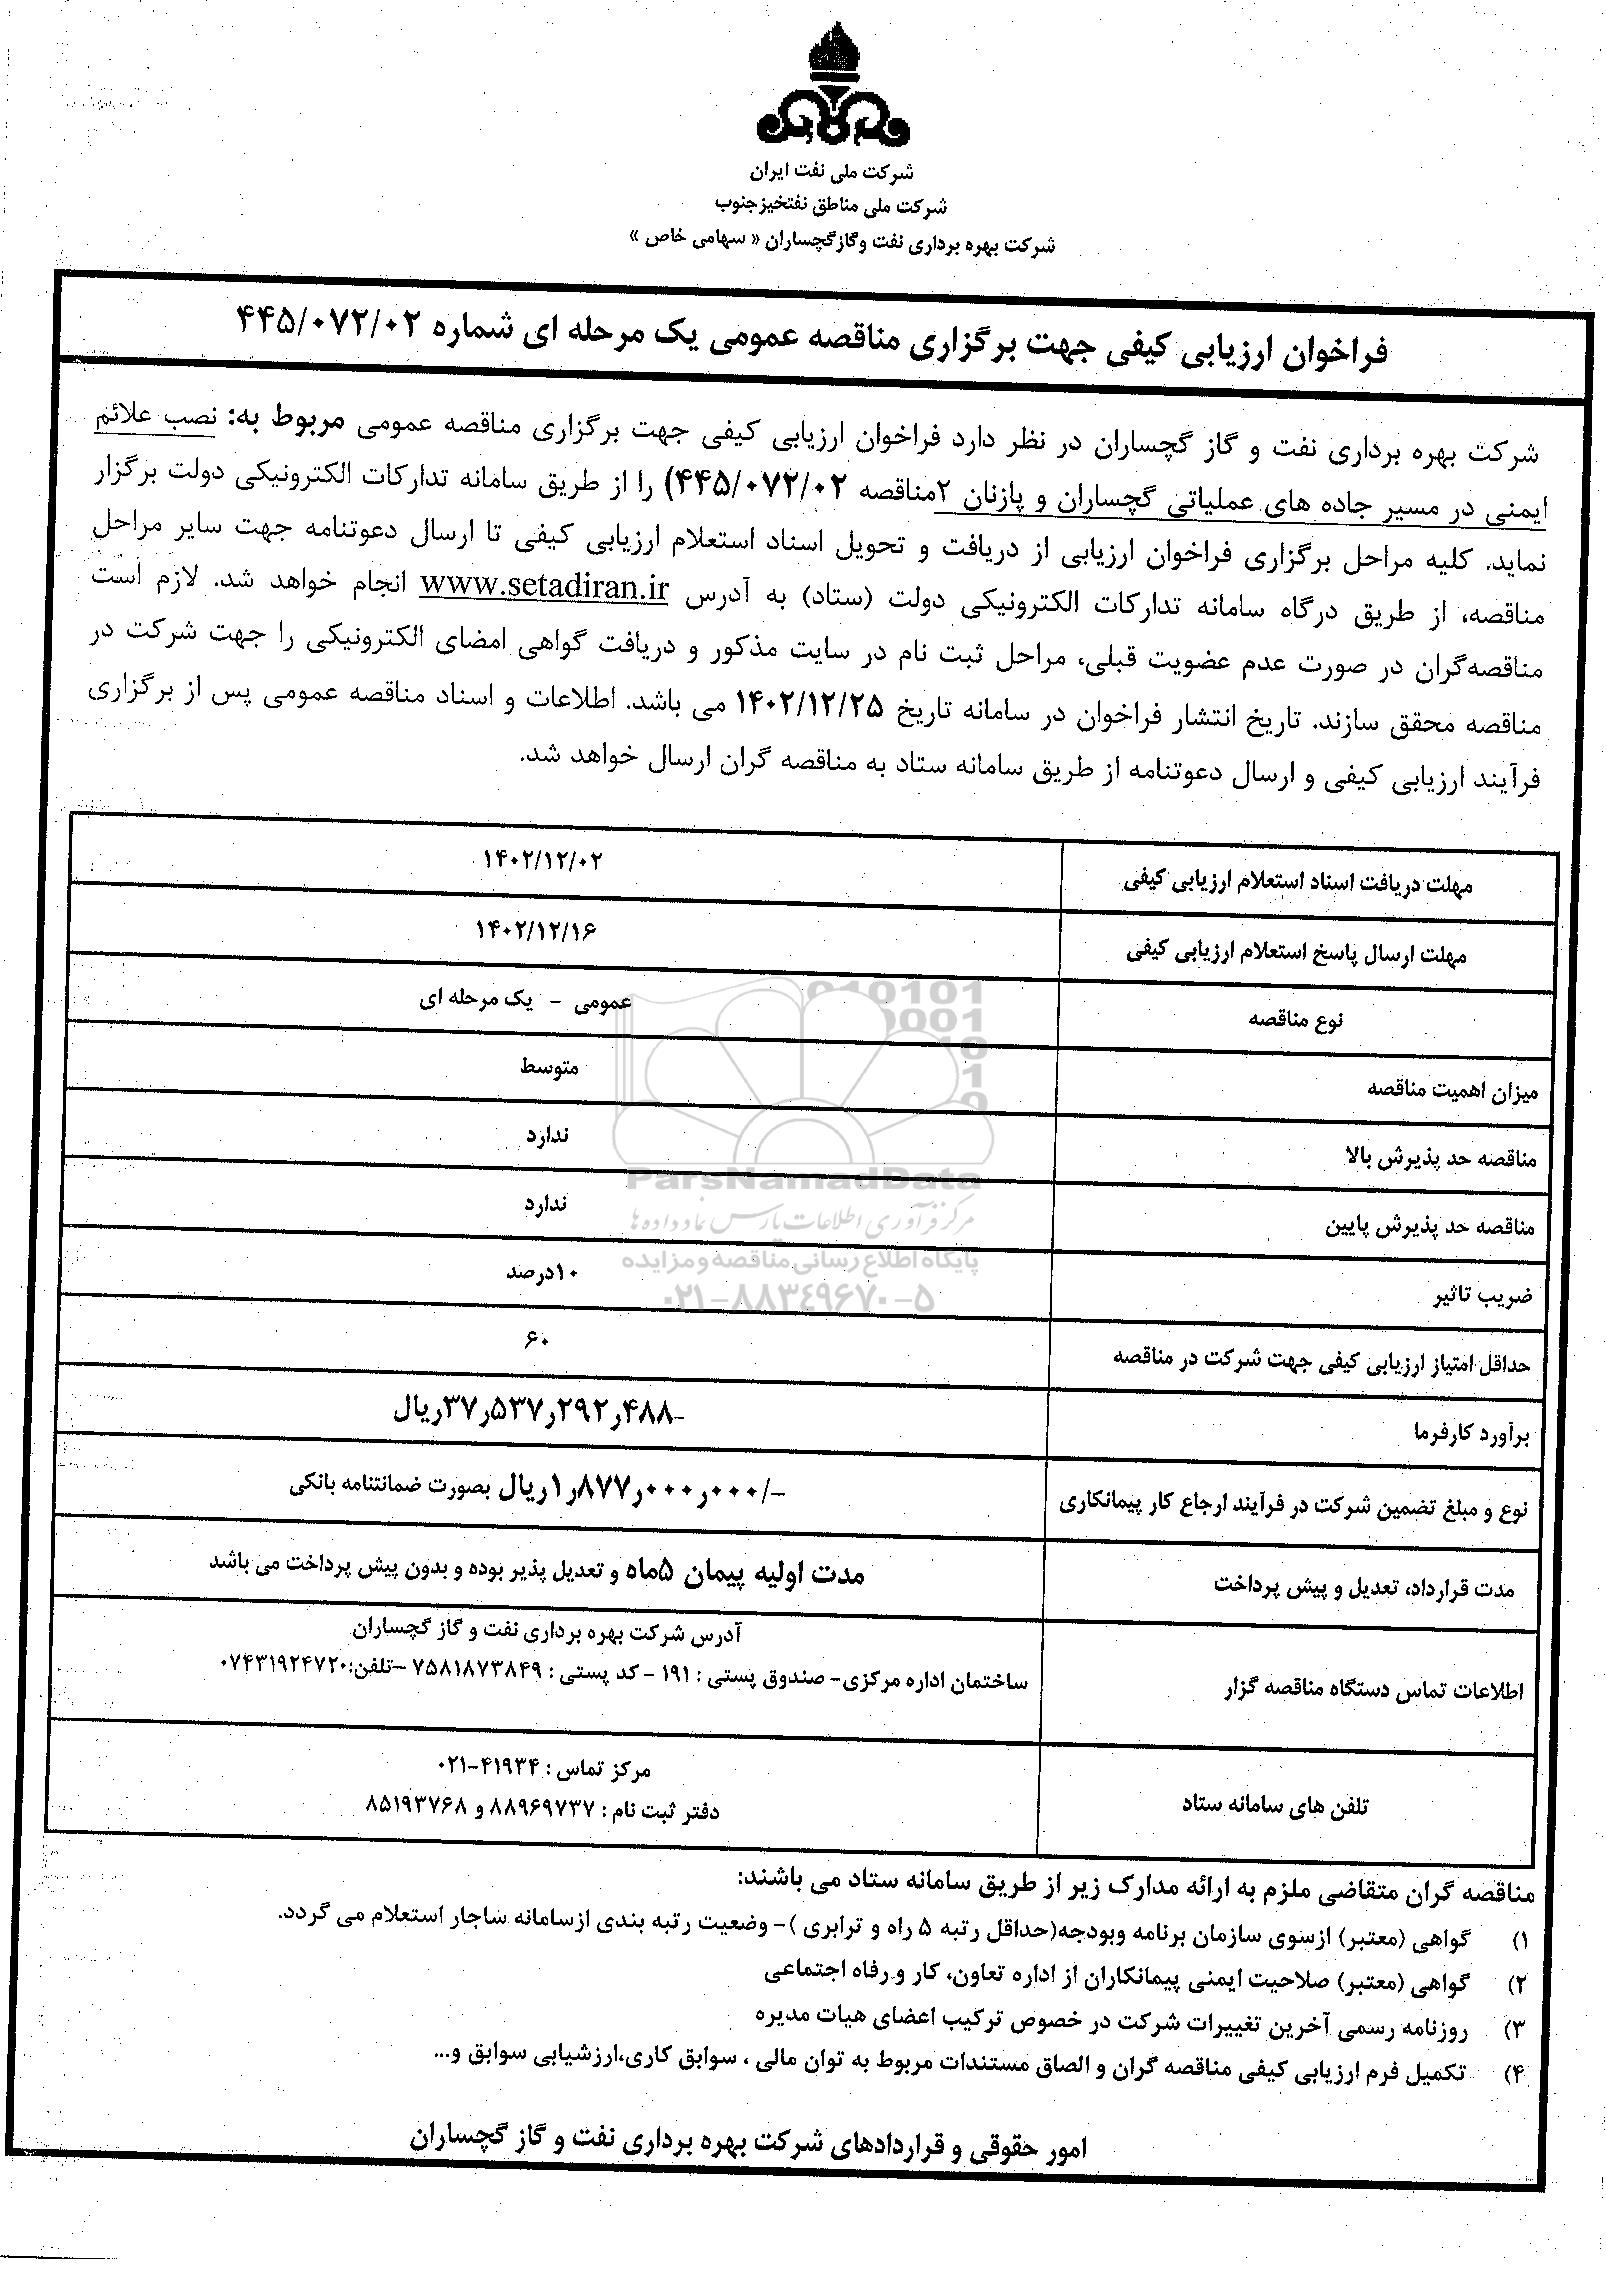 شرکت ملی نفت ایران
شرکت ملی مناطق نفتخیزجنوب
شرکت بهره برداری نفت وگازگچساران « سهامی خاص »
فراخوان ارزیابی کیفی جهت برگزاری مناقصه عمومی یک مرحله ای شماره ۴۴۵/۰۷۲/۰۲
شرکت بهره برداری نفت و گاز گچساران در نظر دارد فراخوان ارزیابی کیفی جهت برگزاری مناقصه عمومی مربوط به: نصب علائم
ایمنی در مسیر جاده های عملیاتی گچساران و پازنان ۲مناقصه ۴۴۵/۰۷۲/۰۲) را از طریق سامانه تدارکات الکترونیکی دولت برگزار
نماید. کلیه مراحل برگزاری فراخوان ارزیابی از دریافت و تحویل اسناد استعلام ارزیابی کیفی تا ارسال دعوتنامه جهت سایر مراحل
مناقصه، از طریق درگاه سامانه تدارکات الکترونیکی دولت (ستاد) به آدرس www.setadiran.ir انجام خواهد شد. لازم است
مناقصه‌گران در صورت عدم عضویت قبلی، مراحل ثبت نام در سایت مذکور و دریافت گواهی امضای الکترونیکی را جهت شرکت در
مناقصه محقق سازند. تاریخ انتشار فراخوان در سامانه تاریخ ۱۴۰۲/۱۲/۲۵ می باشد. اطلاعات و اسناد مناقصه عمومی پس از برگزاری
فرآیند ارزیابی کیفی و ارسال دعوتنامه از طریق سامانه ستاد به مناقصه گران ارسال خواهد شد.
مهلت دریافت اسناد استعلام ارزیابی کیفی ۱۴۰۲/۱۲/۰۲
مهلت ارسال پاسخ استعلام ارزیابی کیفی ۱۴۰۲/۱۲/۱۶
نوع مناقصه عمومی - یک مرحله ای
میزان اهمیت مناقصه متوسط
مناقصه حد پذیرش بالا ندارد
مناقصه حد پذیرش پایین ندارد
ضریب تاثیر ۱۰درصد
حداقل امتیاز ارزیابی کیفی جهت شرکت در مناقصه ۶۰
برآورد کارفرما -۳۷ر۵۳۷ر۲۹۲ر۴۸۸ریال
نوع و مبلغ تضمین شرکت در فرآیند ارجاع کار پیمانکاری -/۱ر۸۷۷ر۰۰۰ر۰۰۰ریال بصورت ضمانتنامه بانکی
مدت قرارداد، تعدیل و پیش پرداخت مدت اولیه پیمان ۵ماه و تعدیل پذیر بوده و بدون پیش پرداخت می باشد
اطلاعات تماس دستگاه مناقصه گزار آدرس شرکت بهره برداری نفت و گاز گچساران
ساختمان اداره مرکزی- صندوق پستی : ۱۹۱ - کد پستی : ۷۵۸۱۸۷۳۸۴۹ –تلفن:۰۷۴۳۱۹۲۴۷۲۰
تلفن های سامانه ستاد مرکز تماس : ۴۱۹۳۴-۰۲۱
دفتر ثبت نام : ۸۸۹۶۹۷۳۷ و ۸۵۱۹۳۷۶۸
ParsNamadData
مرکز فرآوری اطلاعات پارس نماد داده ها
پایگاه اطلاع رسانی مناقصه و مزایده
۰۲۱-۸۸۳۴۹۶۷۰-۵
مناقصه گران متقاضی ملزم به ارائه مدارک زیر از طریق سامانه ستاد می باشند:
۱) گواهی (معتبر) ازسوی سازمان برنامه وبودجه(حداقل رتبه ۵ راه و ترابری )- وضعیت رتبه بندی ازسامانه ساجار استعلام می گردد.
۲) گواهی (معتبر) صلاحیت ایمنی پیمانکاران از اداره تعاون، کار و رفاه اجتماعی
۳) روزنامه رسمی آخرین تغییرات شرکت در خصوص ترکیب اعضای هیات مدیره
۴) تکمیل فرم ارزیابی کیفی مناقصه گران و الصاق مستندات مربوط به توان مالی ، سوابق کاری،ارزشیابی سوابق و...
امور حقوقی و قراردادهای شرکت بهره برداری نفت و گاز گچساران